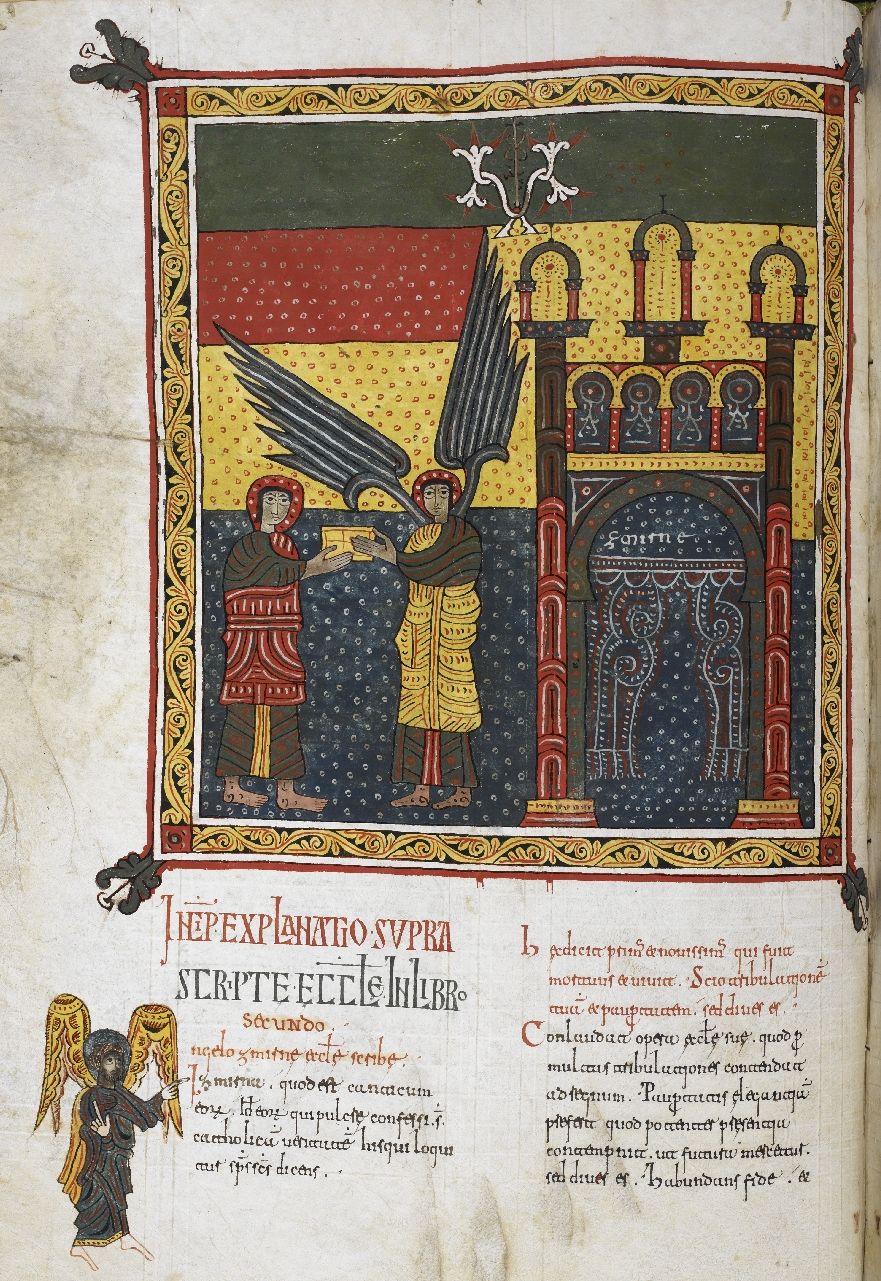 zmirne
INCIP EXPLANATIO · SVPRA
SCRIPTE ECCLE IN LIBRO
SECUNDO.
ngelo zmirne eccle scribe.
Izmirna. quod est canticum
eorum. qui pulse confessi.s.
catholica hisqui loqun
tur sps scs dicens.
hec dicit prim & nouissim qui fuit
mortuus & uiuit. Scio tribulatione
tua & paupertatem. sed diues es.
Conlaudat opera eccle sue. quod p
multas tribulationes contendat
ad regnum. Paupertatis
prefert quod potentes presentia
ut futura mercetur.
sed diues es. Habundans fide. &